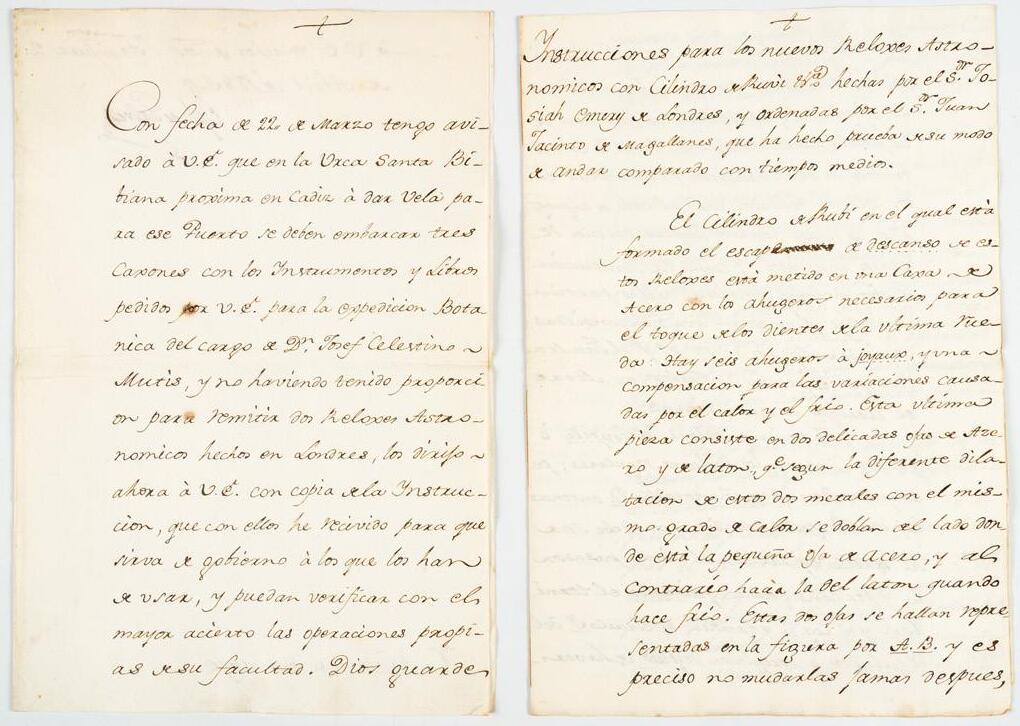 Con fecha de 22,, de Marzo tengo avi-
sado à V.E. que en la Urca Santa Bi-
biana proxima en Cadiz à dar Vela pa-
ra ese Puerto se deben embarcar tres
Caxones con los Instrumentos y Libros
pedidos por V.E. para la expedicion Bota
nica del cargo de Dn. Josef Celestino
Mutis, y no haviendo tenido proporci
on para remitir dos Reloxes Astro-
nomicos hechos en Londres, los dirijo
ahora à V.E. con copia de la Instruc-
cion, que con ellos he recivido para que
sirva de gobierno à los que los han
de usar, y puedan verificar con el
mayor acierto las operaciones propi-
as de su facultad. Dios guarde
Instrucciones para los nuevos Reloxes Astro-
nomicos con Cilindro de Rubi hechas por el Sor. Jo-
siah Emery de Londres, y ordenadas por el Sor. Juan
Jacinto de Magallanes, que ha hecho prueba de su modo
de andar comparado con tiempos medios.
El Cilindro de Rubi en el qual està
formado el escap de descanso de es-
tos Reloxes està metido en una Caxa de
Acero con los ahugeros necesarios para
el toque de los dientes de la ultima rue-
da: Hay seis ahugeros à joyaux, y una
compensacion para las variaciones causa-
das por el calor y el frio. Esta ultima
pieza consiste en dos delicadas ojas de Aze-
ro y de laton, qe. segun la diferente dila-
tacion de estos dos metales con el mis-
mo grado de calor se doblan al lado don-
de està la pequeña oja de Acero, y al
contrario hacia la del laton quando
hace frio. Estas dos ojas se hallan repre
sentadas en la figura por A.B. y es
preciso no mudarlas jamas despues,